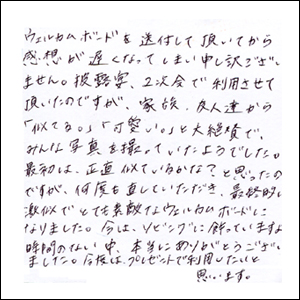 ウェルカムボードを送付して頂いてから
感想が遅くなってしまい申し訳ござい
ません。披露宴、2次会で利用させて
頂いたのですが、家族、友人達から
「似てる。」「可愛い。」と大絶賛で、
みんな写真を撮っていたようでした。
最初は、正直似ているかな？と思ったの
ですが、何度も直していただき、最終的に
激似でとても素敵なウェルカムボードに
なりました。今は、リビングに飾っていますよ
時間のない中、本当にありがとうござい
ました。今後は、プレゼントで利用したいと
思います。